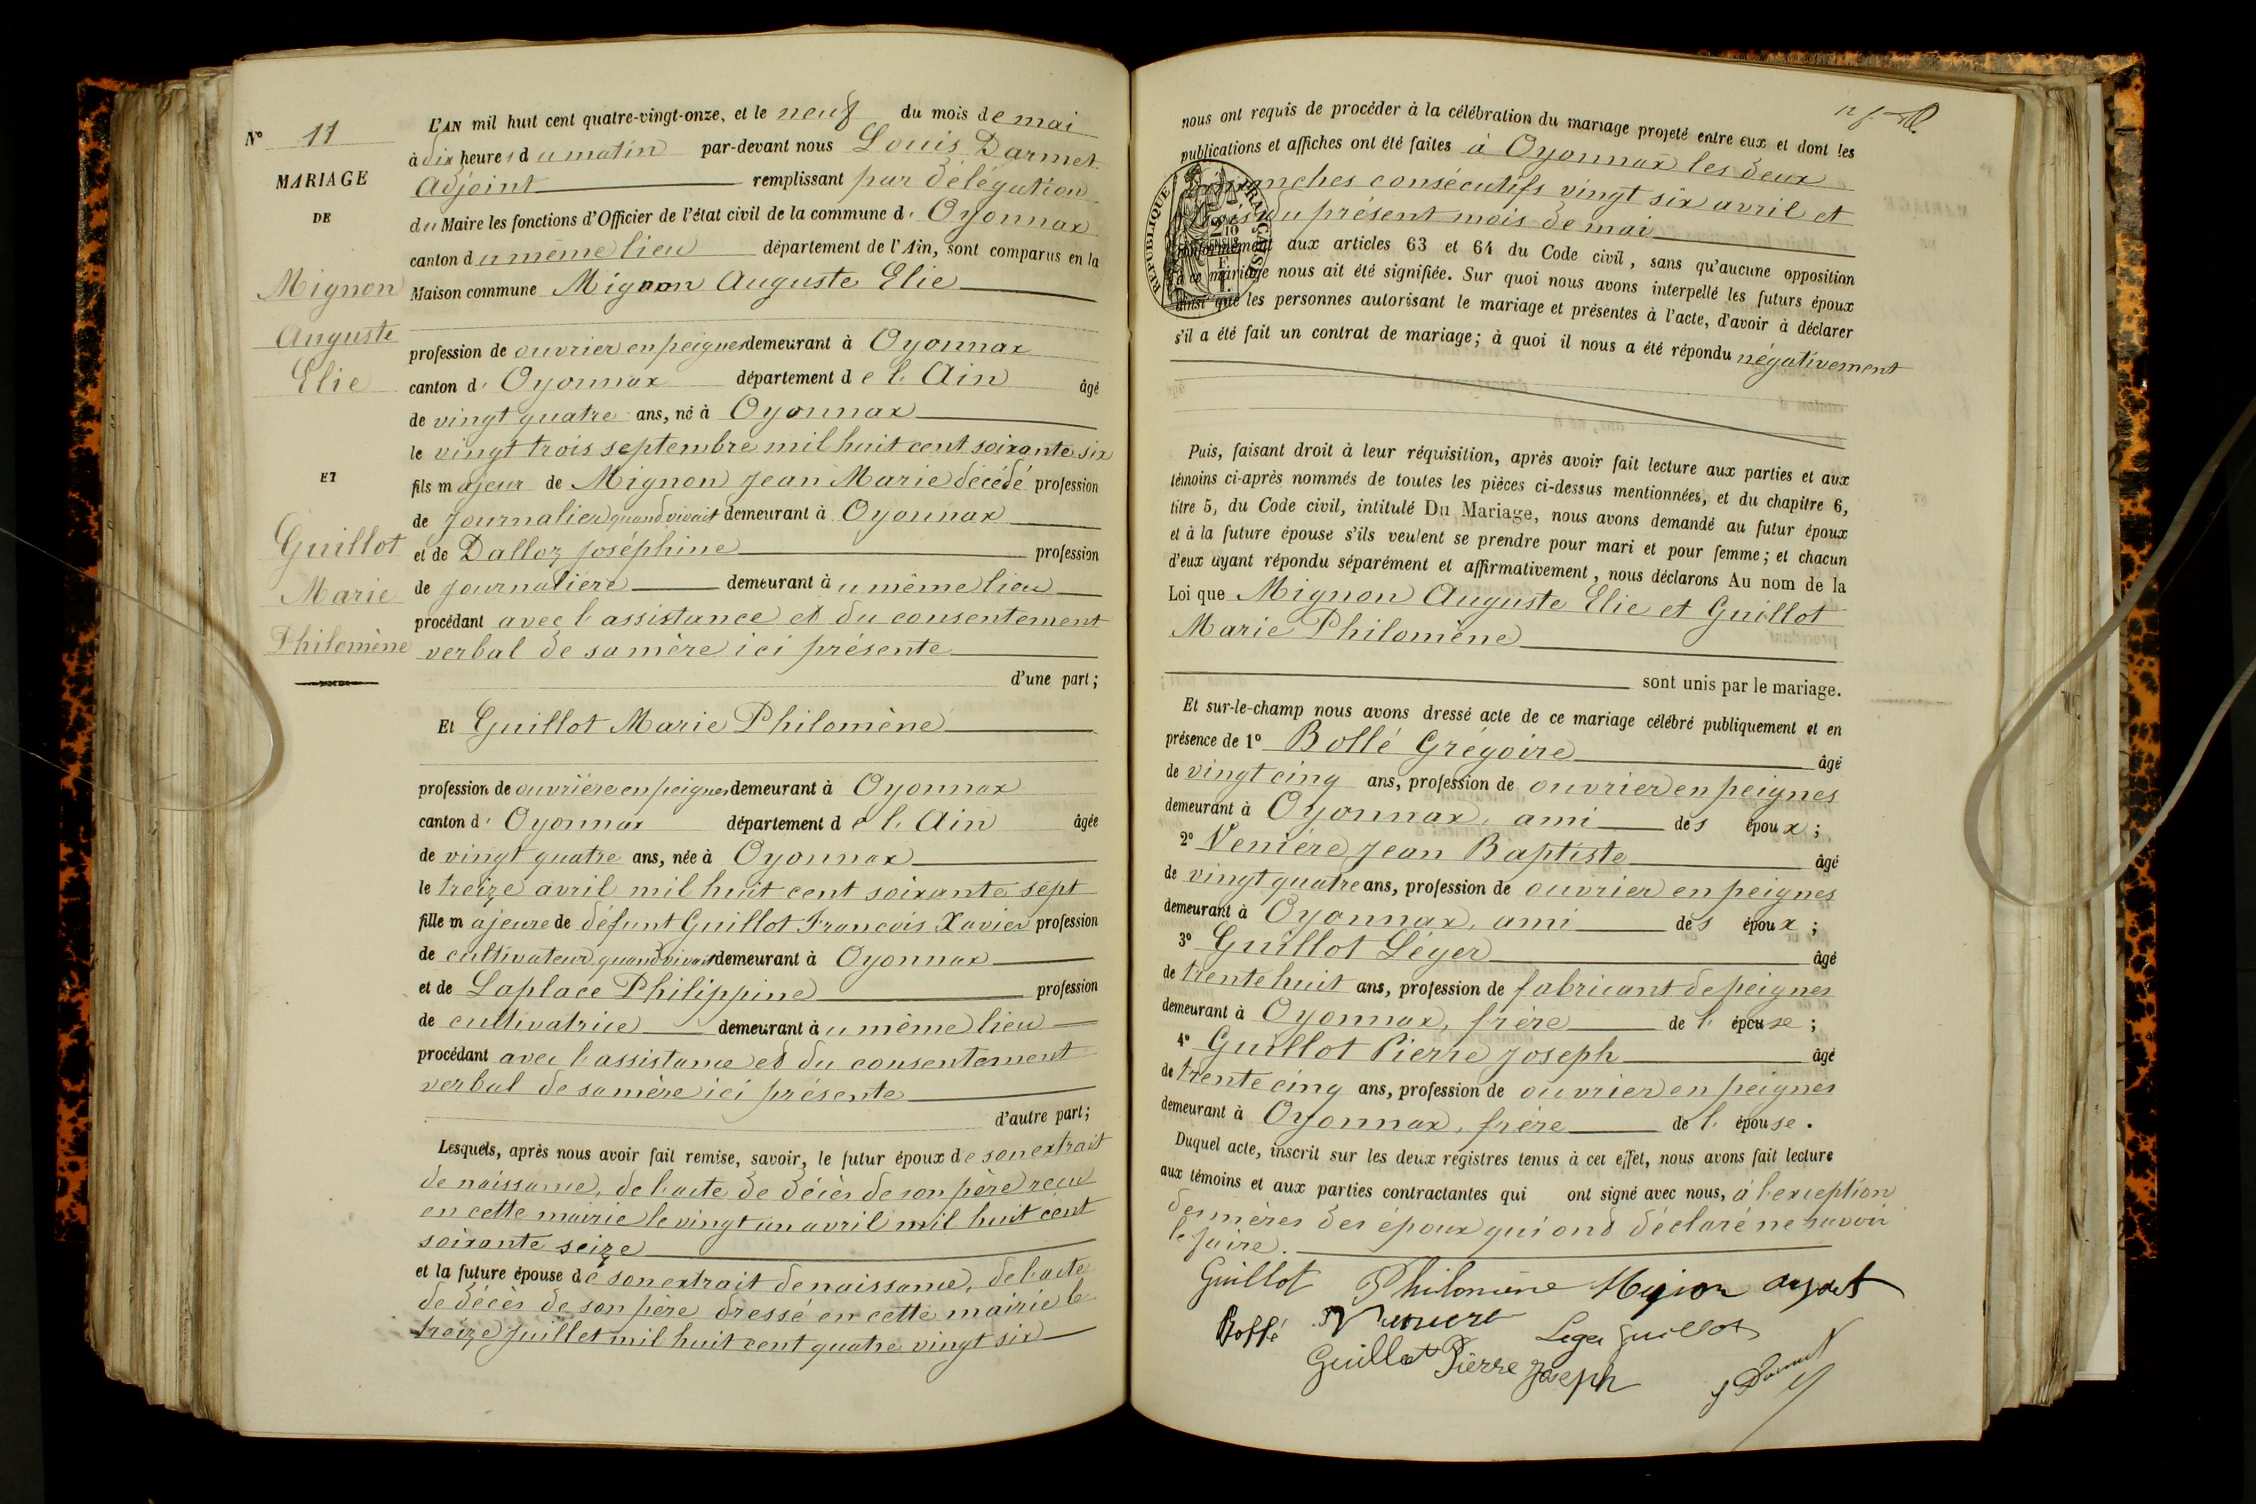 N° 11
MARIAGE
DE
Mignon
Auguste
Elie
ET
Guillot
Marie
Philomène
L'AN mil huit cent quatre-vingt-onze, et le neuf du mois de mai
à dix heures du matin par-devant nous Louis Darmet
Adjoint remplissant par délégation
du Maire les fonctions d'Officier de l'état civil de la commune d' Oyonnax
canton du même lieu département de l'Ain, sont comparus en la
Maison commune Mignon Auguste Elie
profession de ouvrier en peignes demeurant à Oyonnax
canton d' Oyonnax département de l'Ain âgé
de vingt quatre ans, né à Oyonnax
le vingt trois septembre mil huit cent soixante six
fils majeur de Mignon Jean Marie décédé profession
de journalier quand vivait demeurant à Oyonnax
et de Dalloz Joséphine profession
de journalière demeurant au même lieu
procédant avec l'assistance et du consentement
verbal de sa mère ici présente
d'une part;
Et Guillot Marie Philomène
profession de ouvrière en peignes demeurant à Oyonnax
canton d' Oyonnax département de l'Ain âgée
de vingt quatre ans, née à Oyonnax
le treize avril mil huit cent soixante sept
fille majeure de défunt Guillot François Xavier profession
de cultivateur quand vivait demeurant à Oyonnax
et de Laplace Philippine profession
de cultivatrice demeurant au même lieu
procédant avec l'assistance et du consentement
verbal de sa mère ici présente
d'autre part;
Lesquels, après nous avoir fait remise, savoir, le futur époux de son extrait
de naissance, de l'acte de décès de son père reçu
en cette mairie le vingt un avril mil huit cent
soixante seize
et la future épouse de son extrait de naissance, de l'acte
de décès de son père dressé en cette mairie le
treize juillet mil huit cent quatre vingt six
nous ont requis de procéder à la célébration du mariage projeté entre eux et dont les
publications et affiches ont été faites à Oyonnax les deux
dimanches consécutifs vingt six avril et
trois du présent mois de mai
REPUBLIQUE FRANÇAISE
conformément aux articles 63 et 64 du Code civil, sans qu'aucune opposition
à ce mariage nous ait été signifiée. Sur quoi nous avons interpellé les futurs époux
ainsi que les personnes autorisant le mariage et présentes à l'acte, d'avoir à déclarer
s'il a été fait un contrat de mariage; à quoi il nous a été répondu négativement
Puis, faisant droit à leur réquisition, après avoir fait lecture aux parties et aux
témoins ci-après nommés de toutes les pièces ci-dessus mentionnées, et du chapitre 6,
titre 5, du Code civil, intitulé Du Mariage, nous avons demandé au futur époux
et à la future épouse s'ils veulent se prendre pour mari et pour femme; et chacun
d'eux ayant répondu séparément et affirmativement, nous déclarons Au nom de la
Loi que Mignon Auguste Elie et Guillot
Marie Philomène
sont unis par le mariage.
Et sur-le-champ nous avons dressé acte de ce mariage célébré publiquement et en
présence de 1° Bollé Grégoire âgé
de vingt cinq ans, profession de ouvrier en peignes
demeurant à Oyonnax, ami des époux;
2° Venière Jean Baptiste âgé
de vingt quatre ans, profession de ouvrier en peignes
demeurant à Oyonnax, ami des époux;
3° Guillot Léger âgé
de trente huit ans, profession de fabricant de peignes
demeurant à Oyonnax, frère de l'épouse;
4° Guillot Pierre Joseph âgé
de trente cinq ans, profession de ouvrier en peignes
demeurant à Oyonnax, frère de l'épouse.
Duquel acte, inscrit sur les deux registres tenus à cet effet, nous avons fait lecture
aux témoins et aux parties contractantes qui ont signé avec nous, à l'exception
des mères des époux qui ont déclaré ne savoir
le faire.
Guillot Philomène Mignon
Bollé Leger Guillot
Guillot Pierre Joseph